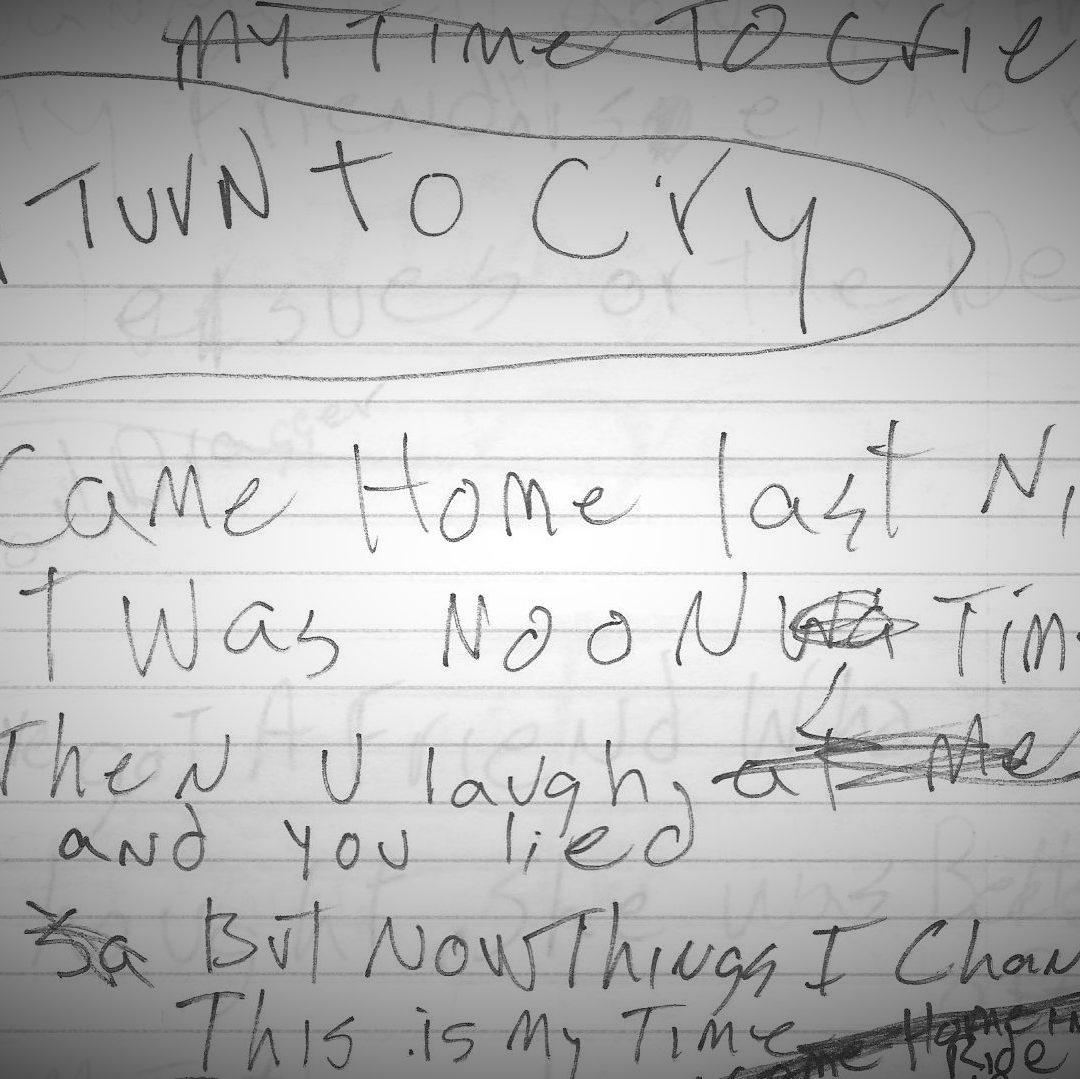 My Time To Crie
Turn to Cry
Came Home last Ni
T Was Noon Tim
Then U laugh, at Me
and you lied
But Now Things I Chan
This is My Time Home in
Ride